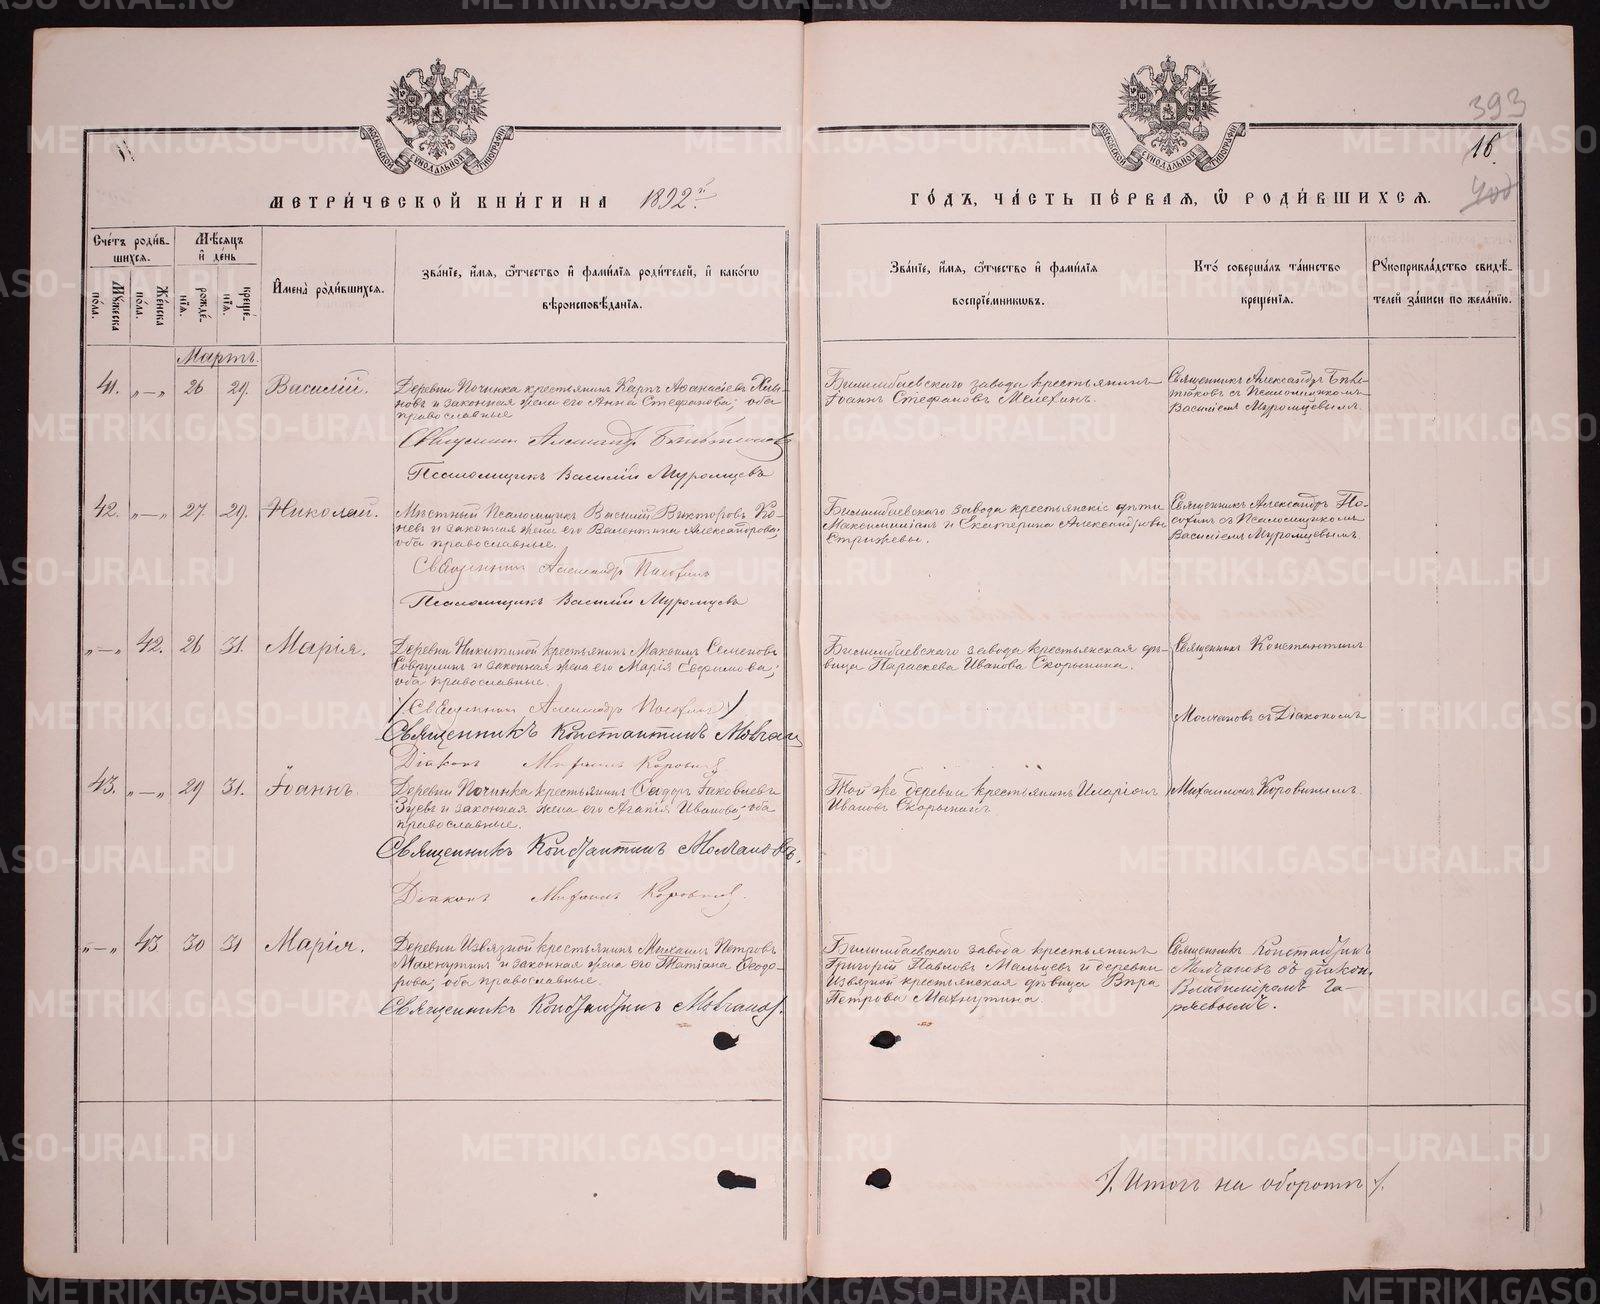 393
16
400
МОСКОВСКОЙ СУНОДАЛЬНОЙ ТИПОГРАФІИ
МОСКОВСКОЙ СУНОДАЛЬНОЙ ТИПОГРАФІИ
МЕТРИ́ЧЕСКОЙ КНИ́ГИ НА 1892й
ГО́ДЪ, ЧА́СТЬ ПЕ́РВАЯ, Ѿ РОДИ́ВШИХСЯ.
Сче́тъ роди́в-
шихся.
Мѣ́сяцъ
и҆ де́нь
Му́жеска
по́ла.
Же́нска
по́ла.
рожде́-
нїя.
креще́-
нїя.
И҆мена̀ роди́вшихся.
Зва́нїе, и҆́мѧ, ѻ҆́тчество и҆ фамі́лїѧ роди́телей, и҆ како́гѡ
вѣроисповѣ́данїѧ.
Зва́нїе, и҆́мѧ, ѻ҆́тчество и҆ фамі́лїѧ
воспрїе́мникѡвъ.
Кто̀ соверша́лъ та́инство
креще́нїѧ.
Рꙋкоприкла́дство свидѣ́-
телей за́писи по жела́нїю.
Мартъ.
41. „—„ 26 29. Василій.
Деревни Починка крестьянинъ Карпъ Аѳанасіевъ
новъ и законная жена его Анна Стефанова; оба
православные
Священникъ Александръ
Псаломщикъ Василій Муромцевъ
Билимбаевскаго завода крестьянинъ
Іоаннъ Стефановъ Мелехинъ.
Священникъ Александръ
съ Псаломщикомъ
Василіемъ Муромцевымъ.
42. „—„ 27 29. Николай.
Мѣстный Псаломщикъ Василій Викторовъ Ко-
невъ и законная жена его Валентина Александрова;
оба православные.
Священникъ Александръ
Псаломщикъ Василій Муромцевъ
Билимбаевскаго завода крестьянскіе дѣти
Максимиліанъ и Екатерина Александровы
Стрижевы.
Священникъ Александръ
съ Псаломщикомъ
Василіемъ Муромцевымъ.
„—„ 42. 26 31. Марія.
Деревни Никитиной крестьянинъ Максимъ Семеновъ
и законная жена его Марія Ефимова;
оба православные.
/Священникъ Александръ /
Священникъ Константинъ Молчанов
Діаконъ Михаилъ Коровинъ
Билимбаевскаго завода крестьянская дѣ-
вица Параскева Иванова Скорынина.
Священникъ Константинъ
Молчановъ съ Діакономъ
43. „—„ 29 31. Іоаннъ.
Деревни Починка крестьянинъ Ѳедоръ Іаковлевъ
Зуевъ и законная жена его Агапія Иванова; оба
православные.
Священникъ Константинъ Молчановъ.
Діаконъ Михаилъ Коровинъ.
Той же деревни крестьянинъ Иларіонъ
Ивановъ Скорынинъ.
Михаиломъ Коровинымъ.
„—„ 43 30 31 Марія.
Деревни Извязной крестьянинъ Михаилъ Петровъ
Махнутинъ и законная жена его Татіана Ѳеодо-
рова; оба православные.
Священникъ Константинъ Молчановъ.
Билимбаевскаго завода крестьянинъ
Григорій Павловъ Мальцевъ и деревни
Извязной крестьянская дѣвица Вѣра
Петрова Махнутина.
Священникъ Константинъ
Молчановъ съ діакон.
Владиміромъ
/. Итогъ на оборотѣ /.
METRIKI.GASO-URAL.RU